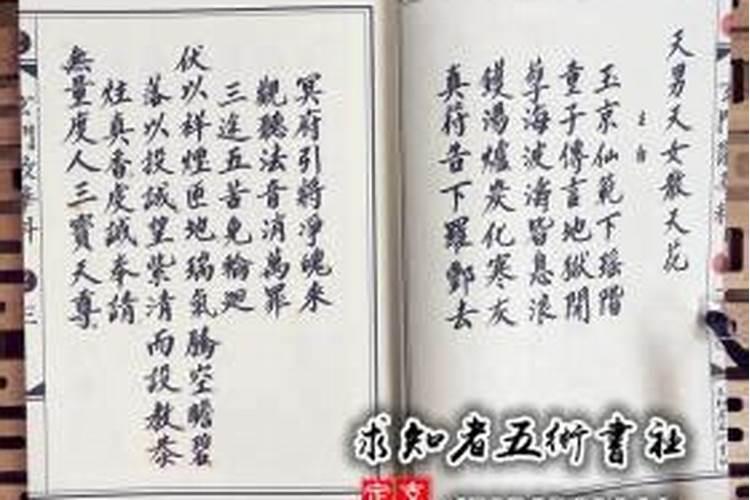 天男天女散天花
玉京仙範下瑶階
童子傳言地獄開
孽海波濤皆息浪
鑊湯爐炭化寒灰
真符告下羅酆去
冥府引將淨魄來
觀聽法音消萬罪
三途五苦免輪廻
伏以祥煙匝地瑞氣騰空瞻碧
落以投誠望紫清而設教恭
炷真香虔誠奉請
無量度人三寶天尊
三
求知者五術書社